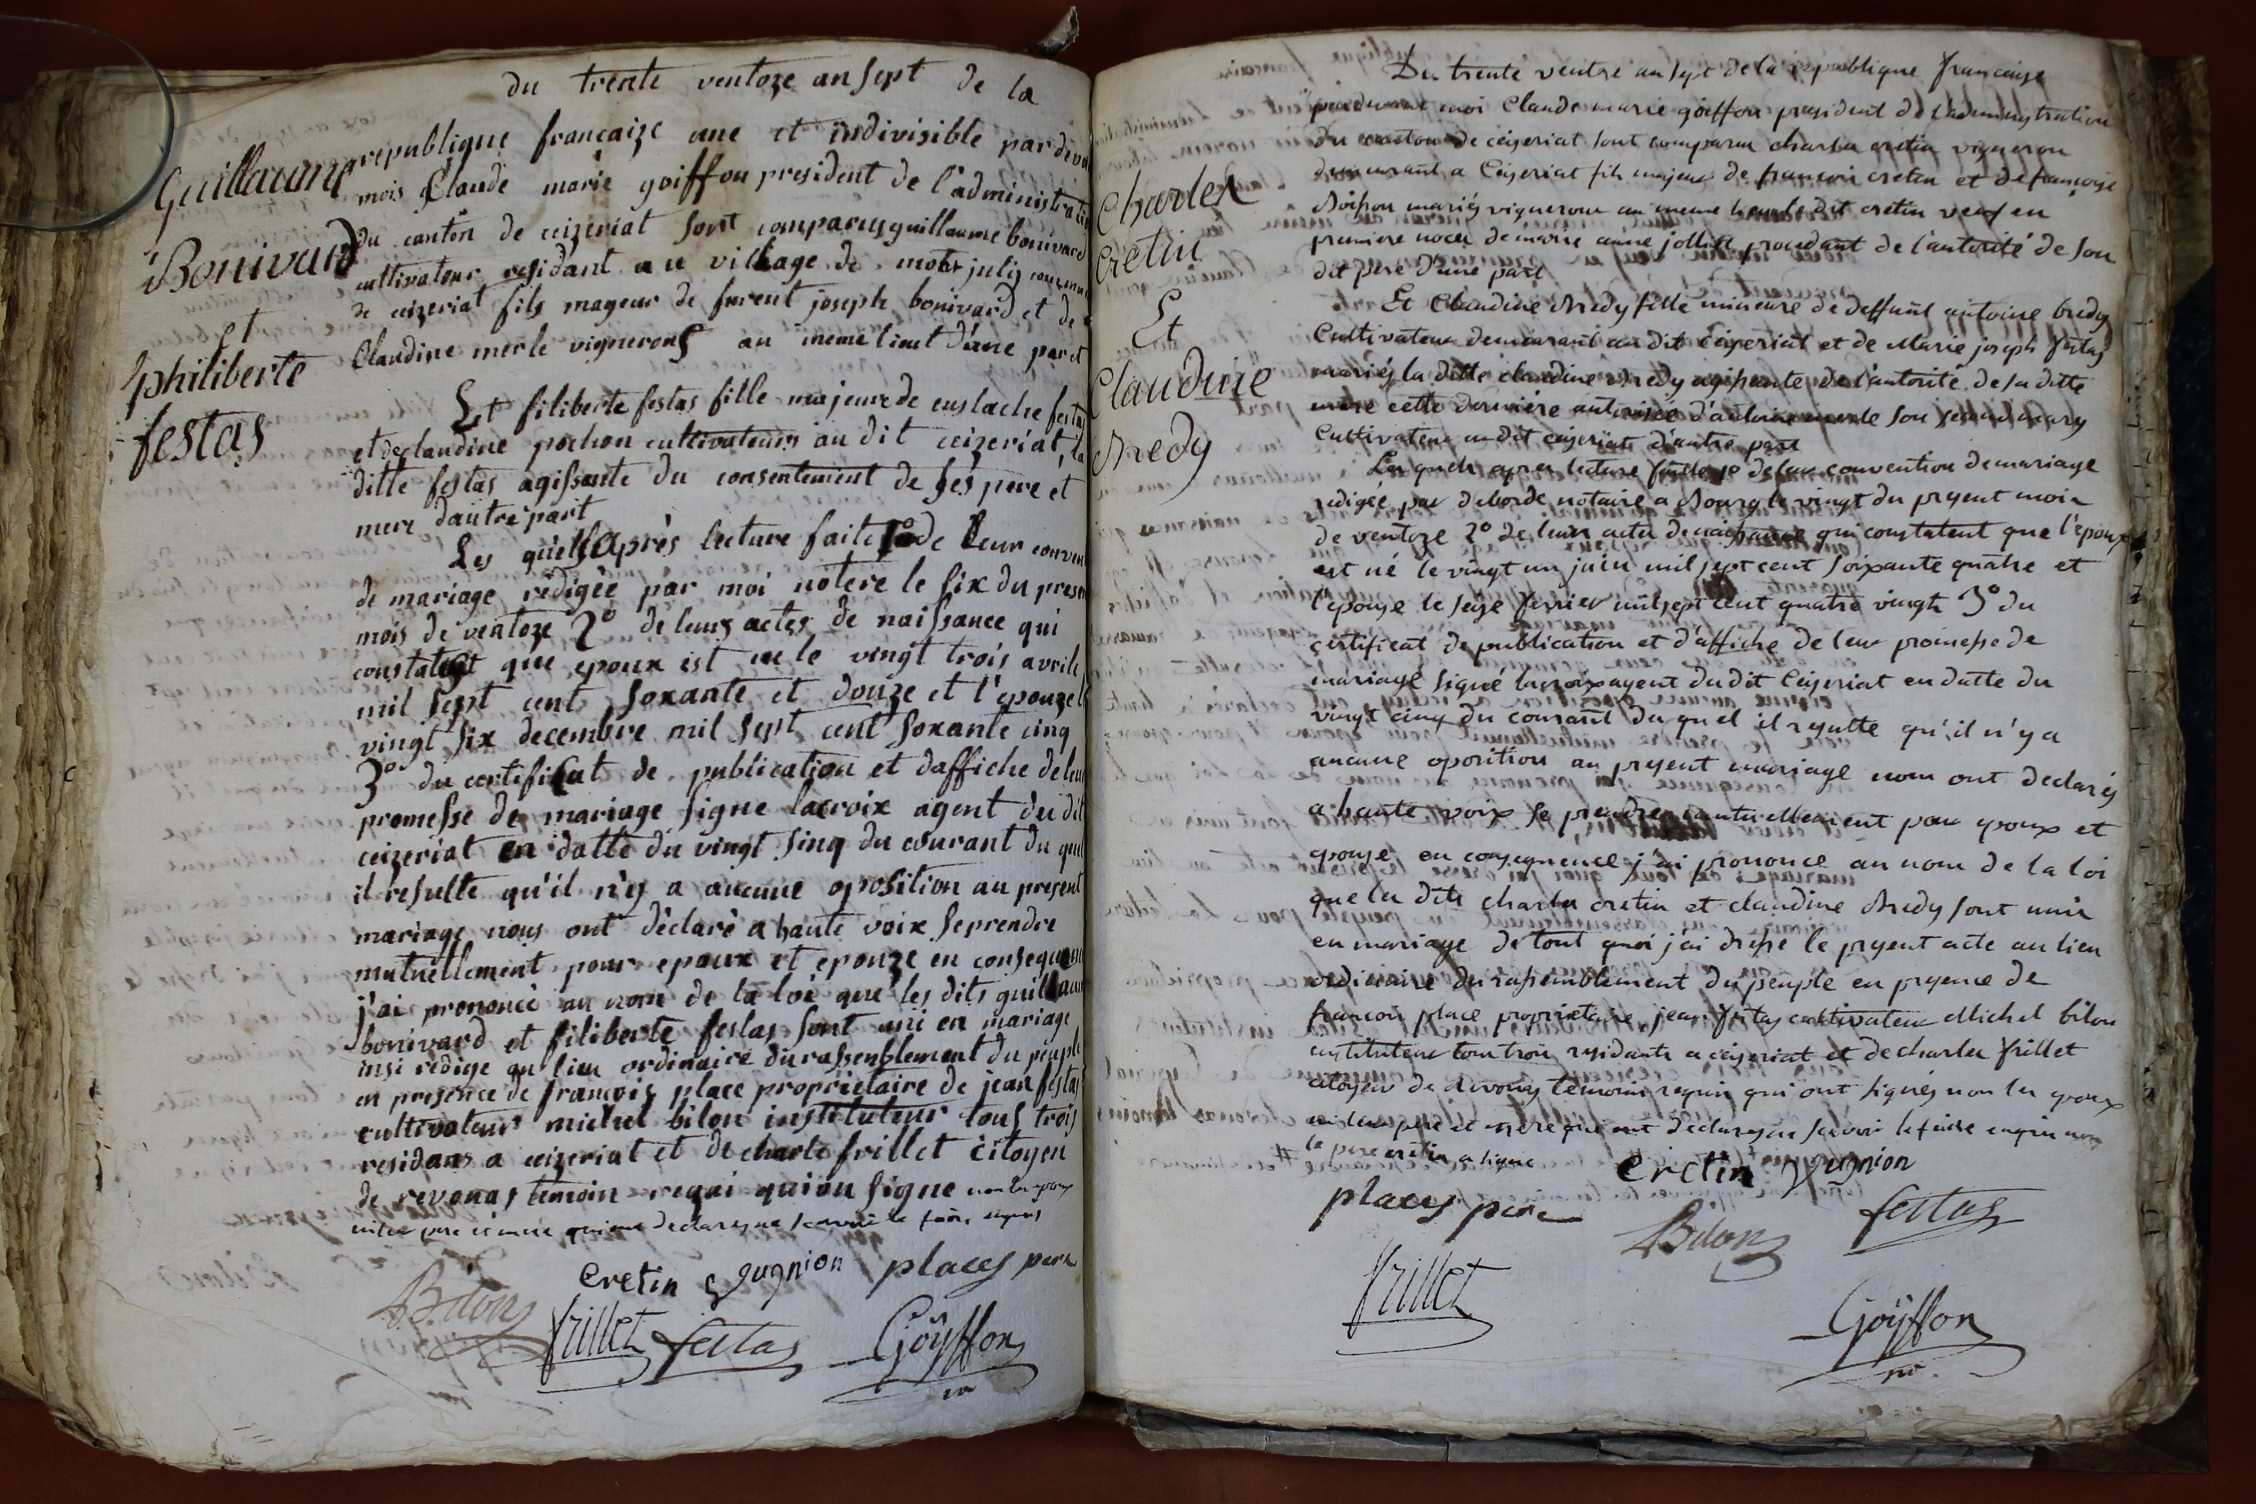 du trente ventoze an sept de la
republique francaize une et indivisible par deva
mois Claude marie goiffon president de l'administrati
du canton de ceizeriat sont comparus guillaume bonivard
cultivateur residant au village de mont julis commune
de ceizeriat fils mageur de furent joseph bonivard et de
Claudine merle vignerons au meme lieut d'une part
Guillaume
Bonivard
et
philiberte
festas
Et filiberte festas fille majeure de eustache festa
et de claudine pochon cultivateurs au dit ceizeriat, la
ditte festas agissante du consentement de ses pere et
mere d'autre part
Les quels après lecture faite 1o de leur conven
de mariage redigée par moi notere le six du prese
mois de ventoze 2o de leurs actes de naissance qui
constatest que epoux est ne le vingt trois avrile
mil sept cent soxante et douze et l'epouze l
vingt six decembre mil sept cent soxante cinq
3o du certificat de publication et daffiche de leu
promesse de mariage signe lacroix agent du dit
ceizeriat en datte du vingt sinq du courant du quel
il resulte qu'il n'y a aucune oposition au present
mariage nous ont dèclarè a haute voix se prendre
mutuellement pour epoux et epouze en consequence
j'ai prononcè au nom de la loi que les dits guillaum
bonivard et filiberte festas sont uni en mariage
insi redige au lieu ordinaire du rassenblement du peuple
en presence de francois place proprietaire de jean festas
cultivateur michel bilon instituteur tous trois
residans a ceizeriat et de charle frillet citoyen
de revonas temoin requi qui on signe non les epoux
ni leur pere et mere qui ont declares ne scavoir le faire enquis
cretin gugnion places pere
Bilon
frillet festas Goÿffon
Du trente ventse an sept de la republique francaise
pardevant moi Claude marie goiffon president de l'administration
du canton de ceyseriat sont comparu charles cretin vigneron
demeurant a Ceyseriat fils majeur de francois cretin et de francoise
Boisson mariés vignerons au meme lieu le dit cretin veuf en
premiere noces de marie anne jollise procedant de l'autorité de son
dit pere d'une part
Charles
cretin
Et
Claudine
Bredy
Et Claudine Bredy fille mineure de deffunt antoine bredy
Cultivateur demeurant au dit Ceyseriat et de Marie joseph festas
mariés la ditte claudine Bredy agissante de l'autorité de sa ditte
mere cette derniére autorisée d'antoine merle son second mary
Cultivateur au dit ceyseriat d'autre part
Les quels apres lecture faitte 1o de leur convention de mariage
redigée par deborde notaire a Bourg le vingt du present mois
de ventoze 2o de leurs actes de naissance qui constatent que l'epoux
est né le vingt un juin mil sept cent soixante quatre et
l'epouse le seize fevrier mil sept cent quatre vingts 3o du
certificat de publication et d'affiche de leur promesse de
mariage signé lacroix agent du dit Ceyseriat en datte du
vingt cinq du courant du quel il resulte qu'il n'y a
aucune oposition au present mariage nous ont declarés
a haute voix se prendre mutuellement pour epoux et
epouse en consequence j'ai prononce au nom de la loi
que les dits charles cretin et claudine Bredy sont unis
en mariage de tout quoi j'ai dresse le present acte au lieu
ordinaire du rassemblement du peuple en presence de
francois place proprietaire, jean festas cultivateur Michel bilon
instituteur tous trois residants a ceyseriat et de charles frillet
citoyen de Revonas temoins requis qui ont signés non les epoux
ni leur pere et mere qui ont declares ne scavoir le faire enquis non
le pere cretin a signe
cretin gugnion
places pere
Bilon festas
frillet
Goÿffon